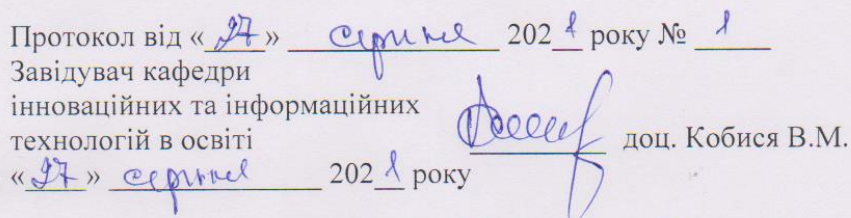 Протокол від «27» серпня 2021 року № 1
Завідувач кафедри
інноваційних та інформаційних
технологій в освіті
доц. Кобися В.М.
«27» серпня 2021 року